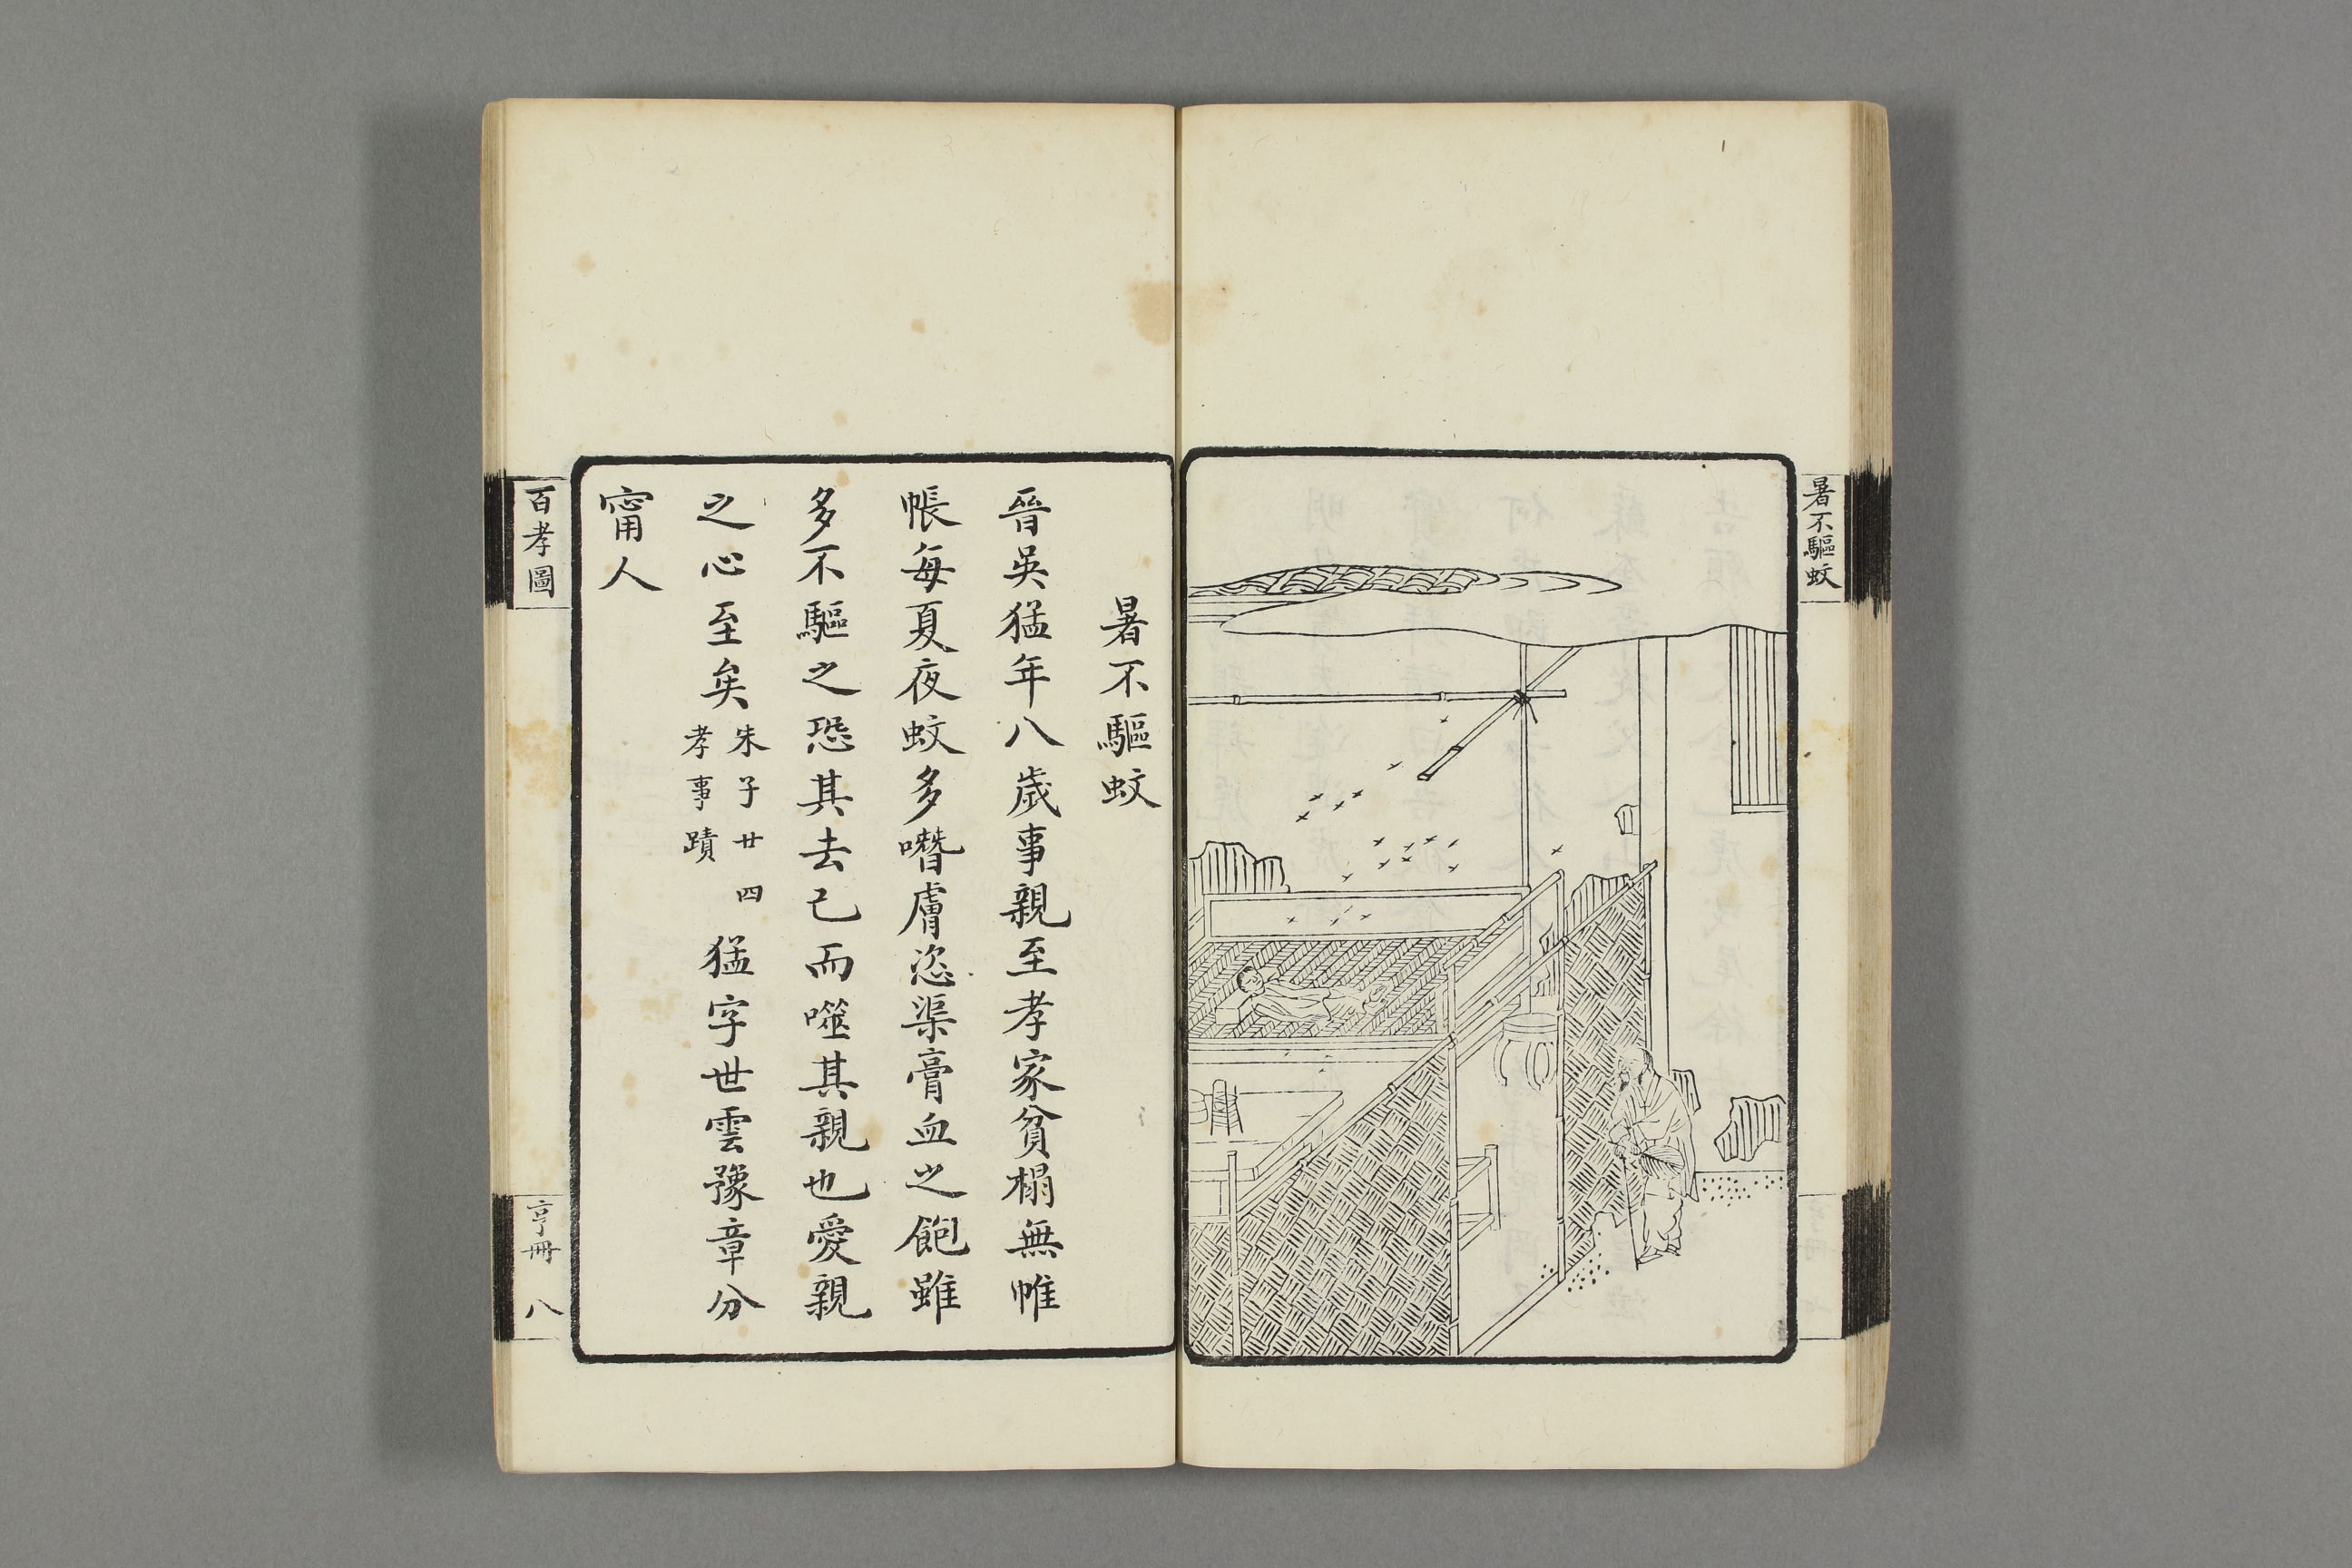 暑不驅蚊
暑不驅蚊
晉吳猛年八歲事親至孝家貧榻無帷
帳每夏夜蚊多噆膚恣渠膏血之飽雖
多不驅之恐其去己而噬其親也愛親
之心至矣
朱子廿四
孝事蹟
猛字世雲豫章分
甯人
百孝圖
亨冊
八